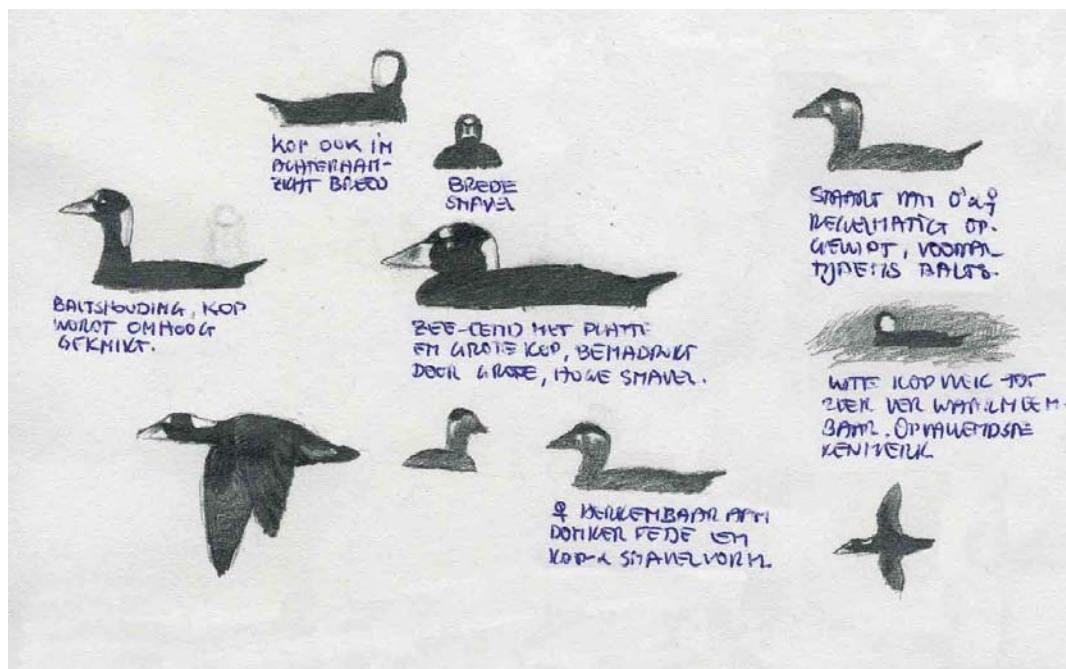 KOP OOK IN
ACHTERAAN-
ZICHT BREED
BREDE
SNAVEL
STAART VAN ♂ & ♀
REGELMATIG OP-
GEWIPT, VOORAL
TIJDENS BALTS.
BALTSHOUDING, KOP
WORDT OMHOOG
GEKNIKT.
ZEE-EEND MET PLATTE
EN GROTE KOP, BENADRUKT
DOOR GROTE, HOGE SNAVEL.
WITTE KOPVLEK TOT
ZEER VER WAARNEEM-
BAAR. OPVALLENDSTE
KENMERK
♀ HERKENBAAR AAN
DONKER FEDE EN
KOP- & SNAVELVORM.